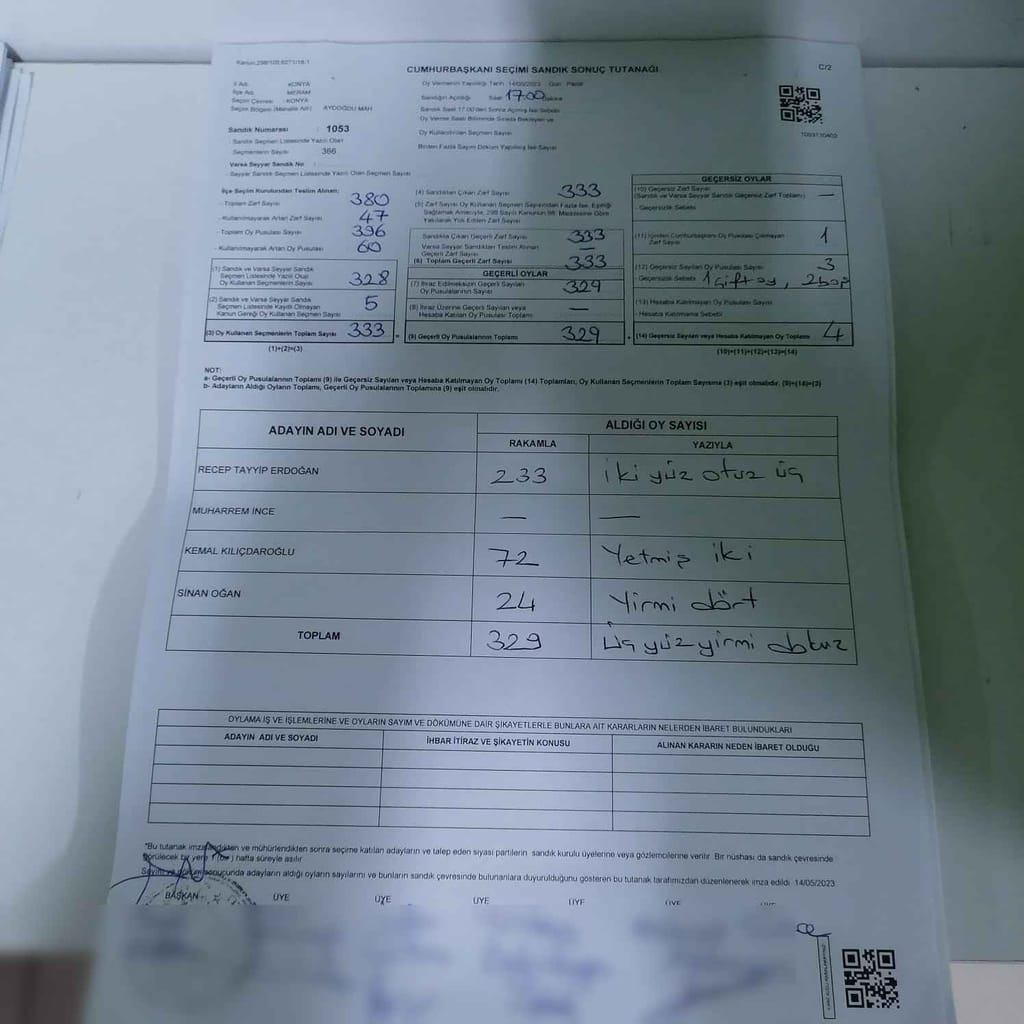 Kanun:298/105,6271/18.1
CUMHURBAŞKANI SEÇİMİ SANDIK SONUÇ TUTANAĞI
C/2
İl Adı : KONYA
İlçe Adı : MERAM
Seçim Çevresi : KONYA
Seçim Bölgesi (Mahalle Adı) : AYDOĞDU MAH.
Sandık Numarası : 1053
Sandık Seçmen Listesinde Yazılı Olan
Seçmenlerin Sayısı : 366
Varsa Seyyar Sandık No :
Seyyar Sandık Seçmen Listesinde Yazılı Olan Seçmen Sayısı
Oy Vermenin Yapıldığı Tarih: 14/05/2023 Gün: Pazar
Sandığın Açıldığı Saat: 17:00
Sandık Saat 17.00'den Sonra Açılmış İse Sebebi
Oy Verme Saati Bitiminde Sırada Bekleyen ve
Oy Kullandırılan Seçmen Sayısı
Birden Fazla Sayım Döküm Yapılmış İse Sayısı
İlçe Seçim Kurulundan Teslim Alınan:
- Toplam Zarf Sayısı 380
- Kullanılmayarak Artan Zarf Sayısı 47
- Toplam Oy Pusulası Sayısı 396
- Kullanılmayarak Artan Oy Pusulası 60
(1) Sandık ve Varsa Seyyar Sandık
Seçmen Listesinde Yazılı Olup
Oy Kullanan Seçmenlerin Sayısı 328
(2) Sandık ve Varsa Seyyar Sandık
Seçmen Listesinde Kayıtlı Olmayan
Kanun Gereği Oy Kullanan Seçmen Sayısı 5
(3) Oy Kullanan Seçmenlerin Toplam Sayısı 333
(1)+(2)=(3)
(4) Sandıktan Çıkan Zarf Sayısı 333
(5) Zarf Sayısı Oy Kullanan Seçmen Sayısından Fazla İse, Eşitliği
Sağlamak Amacıyla, 298 Sayılı Kanunun 98. Maddesine Göre
Yakılarak Yok Edilen Zarf Sayısı
Sandıkta Çıkan Geçerli Zarf Sayısı 333
Varsa Seyyar Sandıktan Teslim Alınan
Geçerli Zarf Sayısı —
(6) Toplam Geçerli Zarf Sayısı 333
GEÇERLİ OYLAR
(7) İtiraz Edilmeksizin Geçerli Sayılan
Oy Pusulalarının Sayısı 329
(8) İtiraz Üzerine Geçerli Sayılan veya
Hesaba Katılan Oy Pusulası Toplamı —
(9) Geçerli Oy Pusulalarının Toplamı 329
GEÇERSİZ OYLAR
(10) Geçersiz Zarf Sayısı
(Sandık ve Varsa Seyyar Sandık Geçersiz Zarf Toplamı) —
- Geçersizlik Sebebi
(11) İçinden Cumhurbaşkanı Oy Pusulası Çıkmayan
Zarf Sayısı 1
(12) Geçersiz Sayılan Oy Pusulası Sayısı 3
- Geçersizlik Sebebi 1 çift oy, 2 boş
(13) Hesaba Katılmayan Oy Pusulası Sayısı
- Hesaba Katılmama Sebebi
(14) Geçersiz Sayılan veya Hesaba Katılmayan Oy Toplamı 4
(10)+(11)+(12)+(13)=(14)
NOT:
a- Geçerli Oy Pusulalarının Toplamı (9) ile Geçersiz Sayılan veya Hesaba Katılmayan Oy Toplamı (14) Toplamları, Oy Kullanan Seçmenlerin Toplam Sayısına (3) eşit olmalıdır. (9)+(14)=(3)
b- Adayların Aldığı Oyların Toplamı, Geçerli Oy Pusulalarının Toplamına (9) eşit olmalıdır.
ADAYIN ADI VE SOYADI ALDIĞI OY SAYISI
RAKAMLA YAZIYLA
RECEP TAYYİP ERDOĞAN 233 iki yüz otuz üç
MUHARREM İNCE — —
KEMAL KILIÇDAROĞLU 72 Yetmiş iki
SİNAN OĞAN 24 Yirmi dört
TOPLAM 329 üç yüz yirmi dokuz
OYLAMA İŞ VE İŞLEMLERİNE VE OYLARIN SAYIM VE DÖKÜMÜNE DAİR ŞİKAYETLERLE BUNLARA AİT KARARLARIN NELERDEN İBARET BULUNDUKLARI
ADAYIN ADI VE SOYADI İHBAR İTİRAZ VE ŞİKAYETİN KONUSU ALINAN KARARIN NEDEN İBARET OLDUĞU
*Bu tutanak imzalandıktan ve mühürlendikten sonra seçime katılan adayların ve talep eden siyasi partilerin sandık kurulu üyelerine veya gözlemcilerine verilir. Bir nüshası da sandık çevresinde
görülecek bir yere 1 (bir) hafta süreyle asılır
Sayım ve döküm sonucunda adayların aldığı oyların sayılarını ve bunların sandık çevresinde bulunanlara duyurulduğunu gösteren bu tutanak tarafımızdan düzenlenerek imza edildi. 14/05/2023
BAŞKAN ÜYE ÜYE ÜYE ÜYE ÜYE